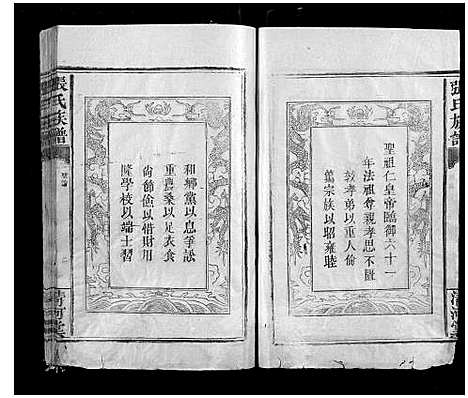 張氏族譜
聖祖仁皇帝臨御六十一
年法祖尊親孝思不匱
敦孝弟以重人倫
篤宗族以昭雍睦
和鄉黨以息爭訟
重農桑以足衣食
尚節儉以惜財用
隆學校以端士習
張氏族譜
清河堂